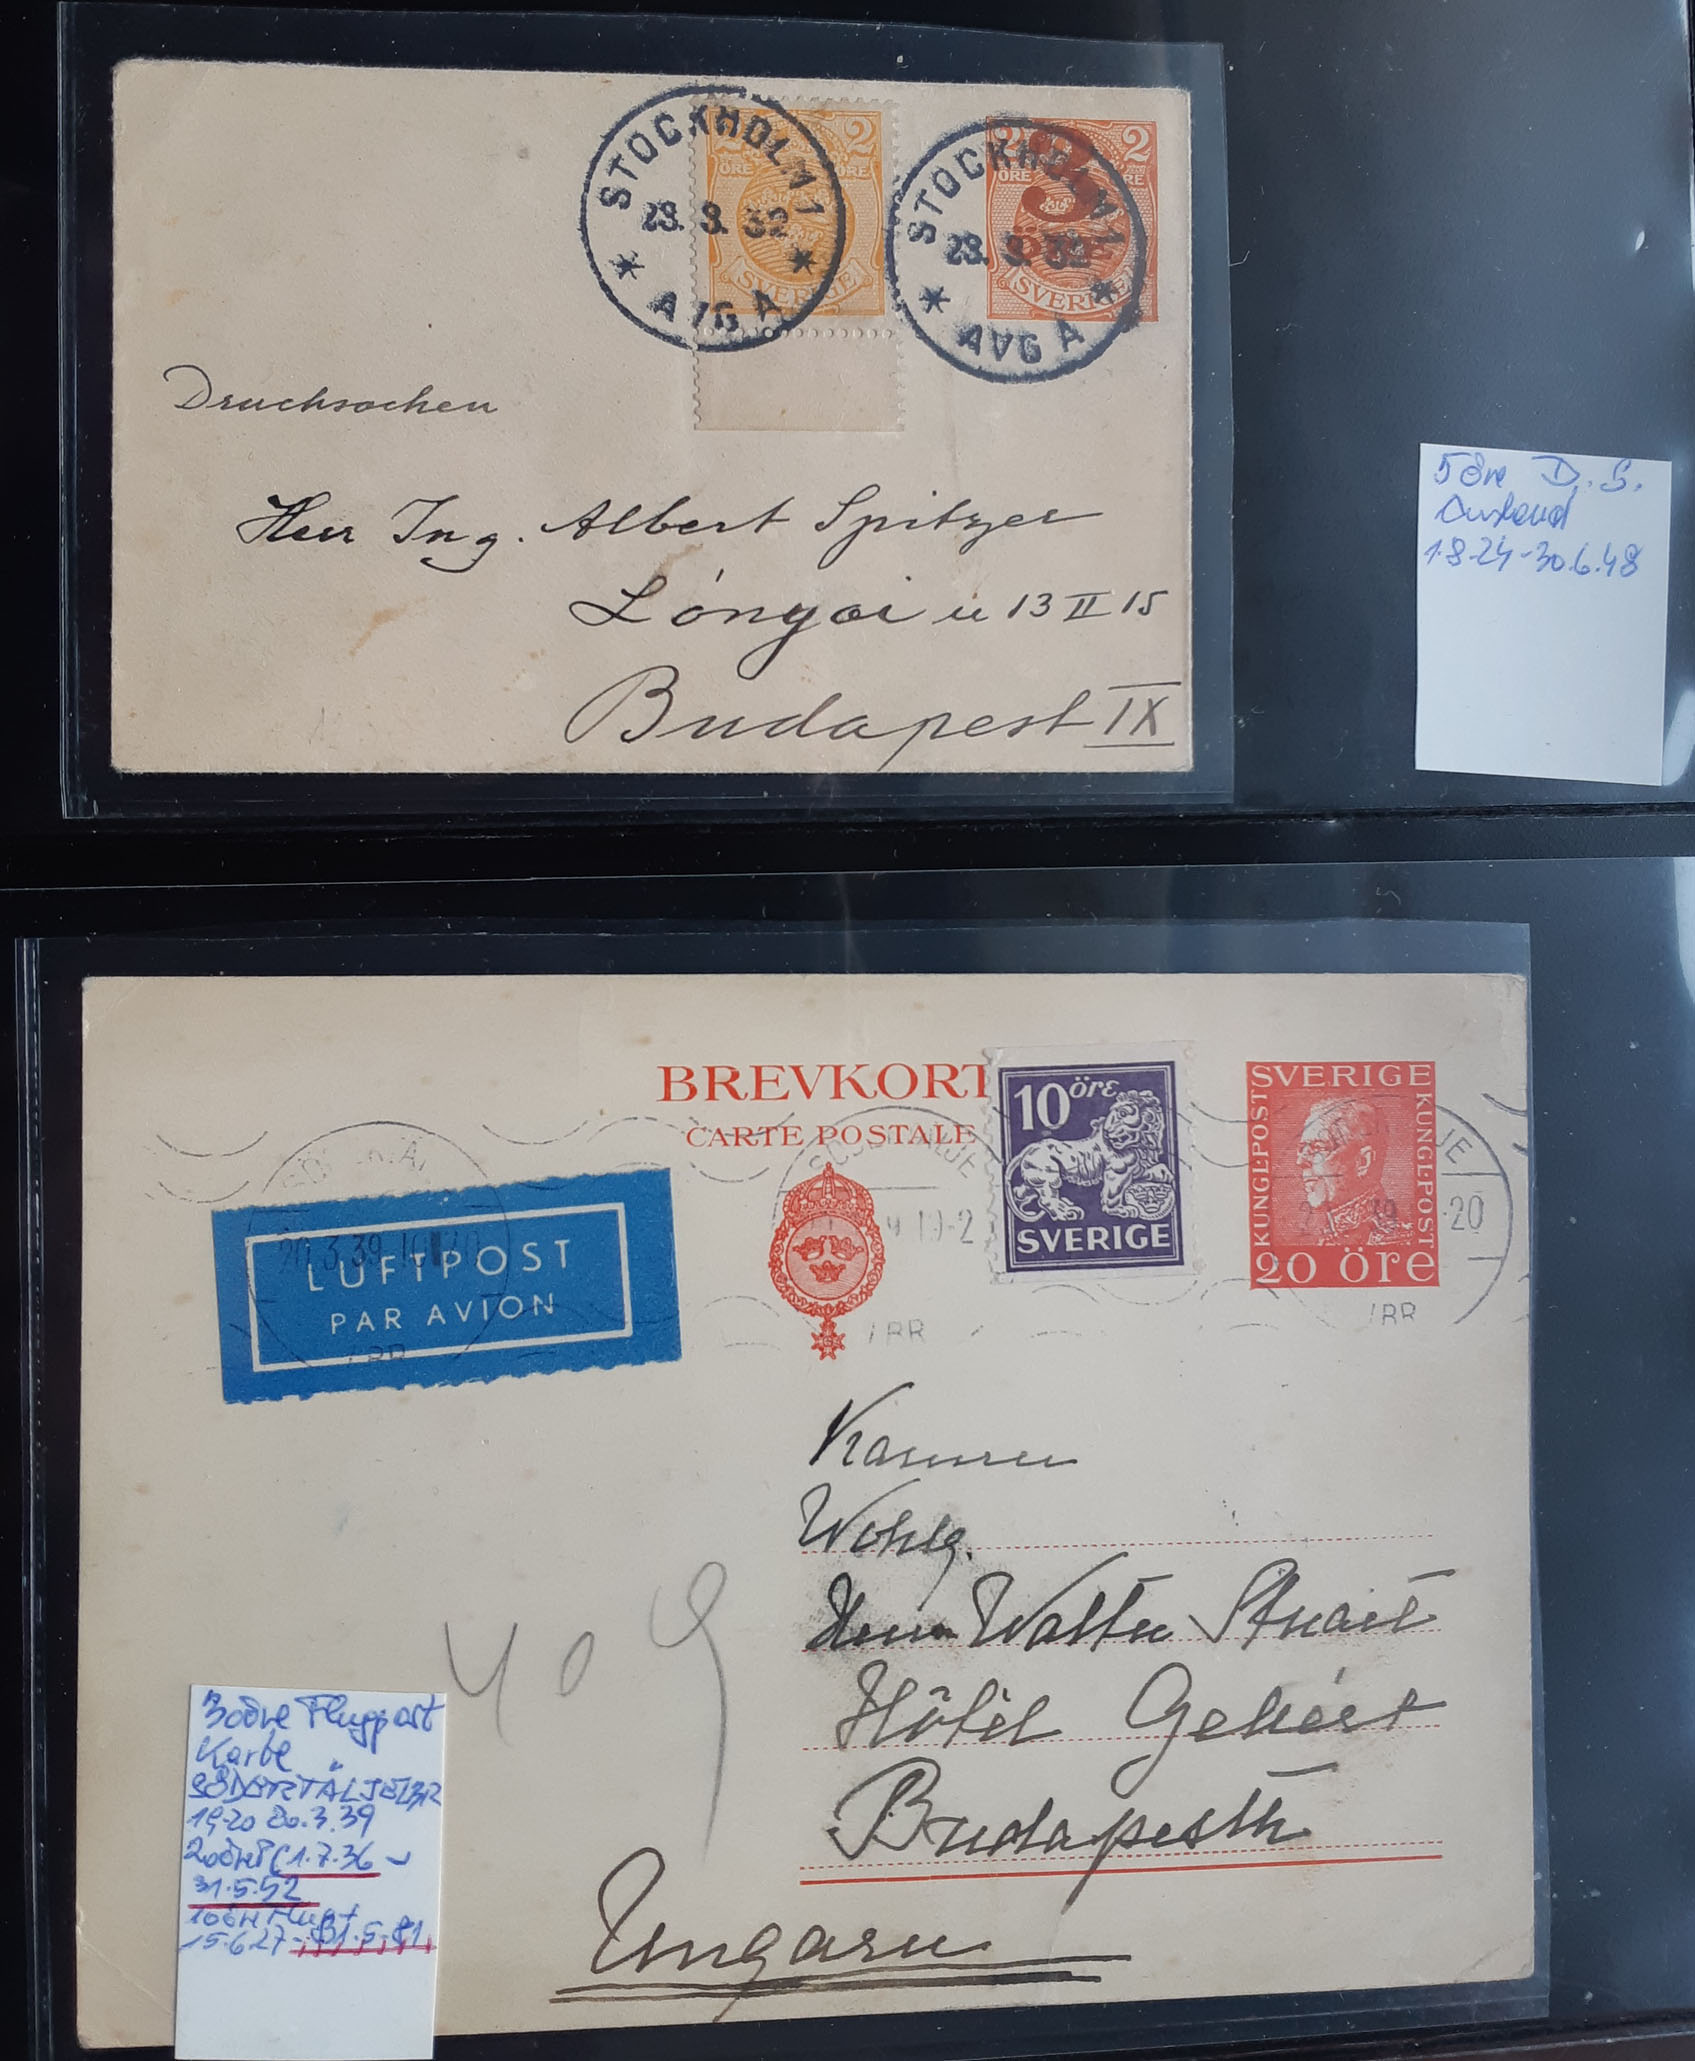 STOCKHOLM 1
23. 3. 32
AVG A
2 2
ÖRE ÖRE
SVERIGE
STOCKHOLM 1
23. 3. 32
AVG A
2 3 2
ÖRE ÖRE
SVERIGE
Drucksachen
Herr Ing. Albert Spitzer
Lónyai u 13 II 15
Budapest IX
5 öre D. S.
Ausland
1.8.24-30.6.48
BREVKORT
CARTE POSTALE
10 öre
SVERIGE
SVERIGE
KUNGL·POST
KUNGL·POST
20 öre
LUFTPOST
PAR AVION
20.3.39
LBR
409
Wohlg.
Herrn Walter Stuart
Hôtel Gellért
Budapesth
Ungarn
30 öre Flugpost
Karte
SÖDERTÄLJE LBR
19-20 20.3.39
1.7.36 -
31.5.52
15.6.27-31.5.